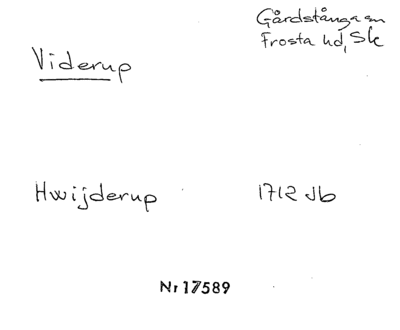 Gårdstånga sn
Frosta hd, Sk
Viderup
Hwijderup 1712 Jb
Nr 17589